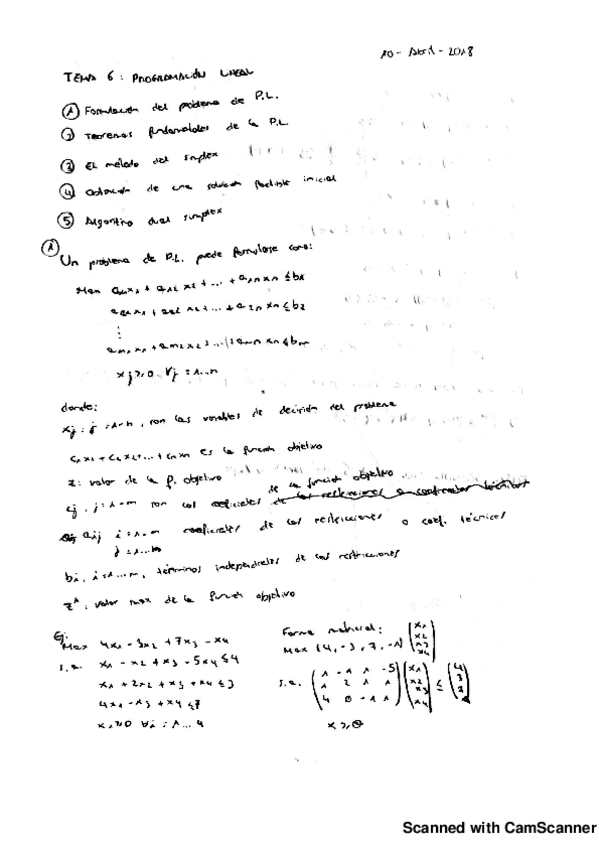 10 - Abril - 2018
TEMA 6: PROGRAMACIÓN LINEAL
① Formulación del problema de P.L.
② Teoremas fundamentales de la P.L.
③ El método del simplex
④ Obtención de una solución factible inicial
⑤ Algoritmo dual simplex
① Un problema de P.L. puede formularse como:
Max a11x1 + a12 x2 + ... + a1n xn ≤ b1
a21x1 + a22 x2 + ... + a2n xn ≤ b2
⋮
am1x1 + am2x2 + ... + amn xn ≤ bm
xj ≥ 0, ∀j = 1...n
donde:
xj, j = 1..n, son las variables de decisión del problema
c1x1 + c2x2 + ... + cnxn es la función objetivo
z: valor de la f. objetivo
cj, j = 1..n son los coeficientes de la función objetivo
aij i = 1..m coeficientes de las restricciones o coef. técnicos
j = 1...n
bi, i = 1...m, términos independientes de las restricciones
z*: valor max de la función objetivo
Ej:
Max 4x1 - 3x2 + 7x3 - x4
s.a. x1 - x2 + x3 - 5x4 ≤ 4
x1 + 2x2 + x3 + x4 ≤ 3
4x1 - x3 + x4 ≤ 7
xi ≥ 0 ∀i = 1...4
Forma matricial:
Max (4, -3, 7, -1) (x1 x2 x3 x4)
s.a. (1 -1 1 -5
1 2 1 1
4 0 -1 1) (x1 x2 x3 x4) ≤ (4 3 7)
x ≥ 0
Scanned with CamScanner